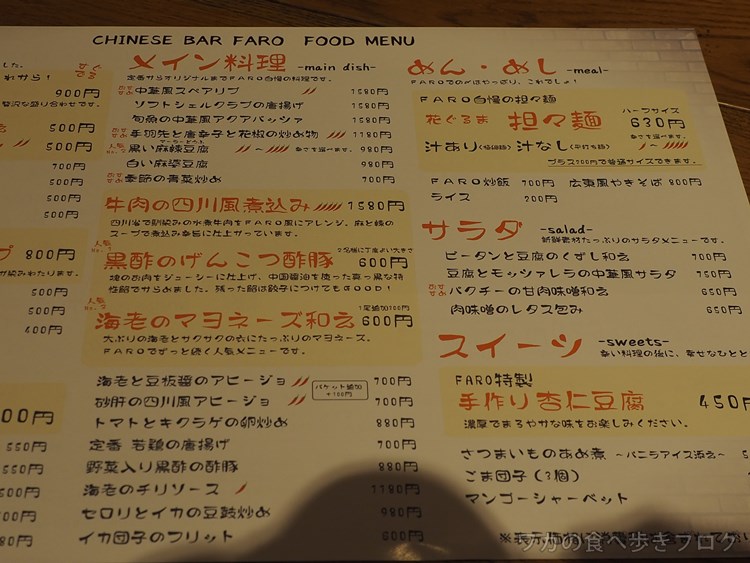 CHINESE BAR FARO FOOD MENU
900円
500円
500円
700円
500円
500円
500円
800円
500円
500円
400円
550円
550円
メイン料理 -main dish-
定番からオリジナルまでFARO自慢の料理です。
おすすめ 中華風スペアリブ 1580円
ソフトシェルクラブの唐揚げ 1580円
旬魚の中華風アクアパッツァ 1580円
おすすめ 手羽先と唐辛子と花椒の炒め物 1180円
人気 黒い麻辣豆腐 ~ 辛さを選べます。 980円
白い麻婆豆腐 980円
おすすめ 季節の青菜炒め 700円
牛肉の四川風煮込み 1580円
四川省で馴染みの水煮牛肉をFARO風にアレンジ。麻と辣の
スープで煮込み辛旨に仕上がっています。
人気No.1 黒酢のげんこつ酢豚 600円
塊のお肉をジューシーに仕上げ、中国醤油を使った真っ黒な特
性餡でからめました。残った餡は餃子につけてもGOOD!
人気No.2 海老のマヨネーズ和え 600円
1尾追加100円
大ぶりの海老とサクサクの衣にたっぷりのマヨネーズ。
FAROでずっと続く人気メニューです。
海老と豆板醤のアヒージョ 700円
砂肝の四川風アヒージョ 700円
バケット追加
+100円
トマトとキクラゲの卵炒め 880円
定番 若鶏の唐揚げ 700円
野菜入り黒酢の酢豚 880円
海老のチリソース 1180円
セロリとイカの豆鼓炒め 980円
イカ団子のフリット 600円
めん・めし -meal-
FAROでの〆はやっぱり、これでしょ!
FARO自慢の担々麺
花ぐるま 担々麺 ハーフサイズ 630円
汁あり 汁なし ~ 辛さを選べます。
プラス200円で普通サイズできます。
FARO炒飯 700円 広東風やきそば 800円
ライス 200円
サラダ -salad-
新鮮素材たっぷりのサラダメニューです。
ピータンと豆腐のくずし和え 700円
豆腐とモッツァレラの中華風サラダ 750円
おすすめ パクチーの甘肉味噌和え 650円
肉味噌のレタス包み 650円
スイーツ -sweets-
辛い料理の後に、幸せなひとと
FARO特製
手作り杏仁豆腐 450円
濃厚でまろやかな味をお楽しみください。
さつまいものあめ煮 ~バニラアイス添え~
ごま団子(3個)
マンゴーシャーベット
ツカの食べ歩きブログ